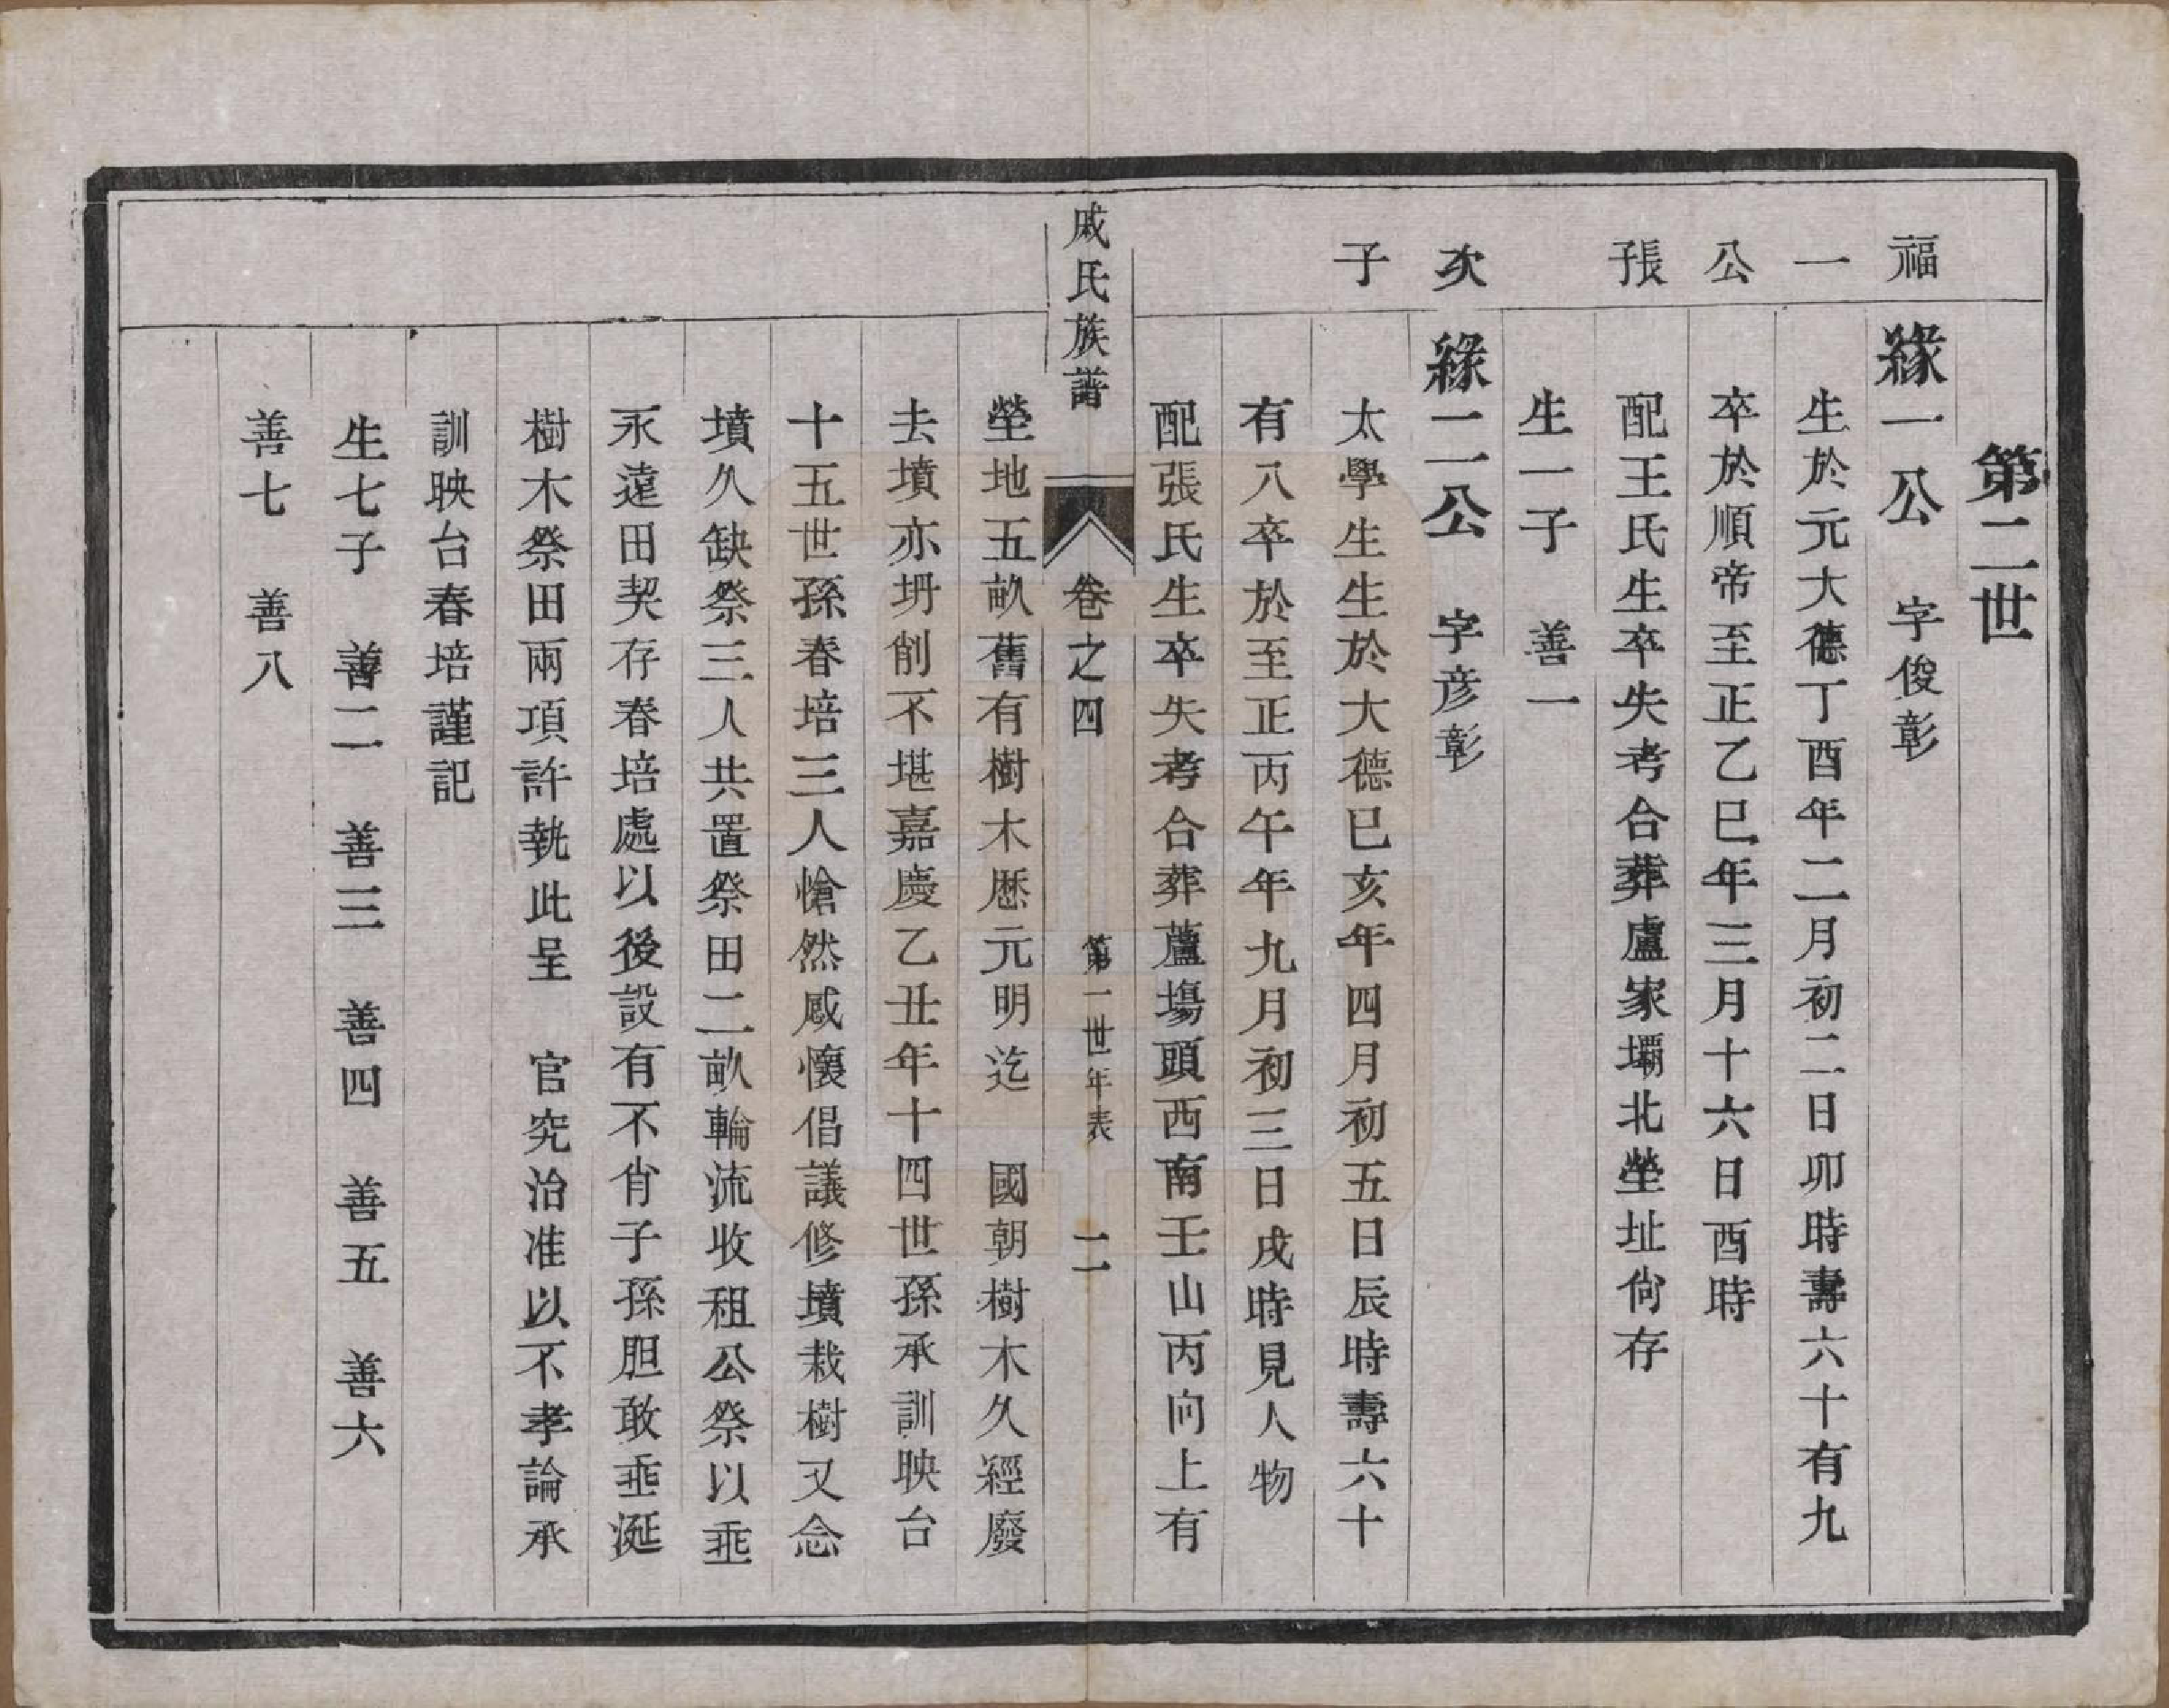 第二世
福
緣一公　字俊彰
一
生於元大德丁酉年二月初二日卯時壽六十有九
公
卒於順帝至正乙巳年三月十六日酉時
張
配王氏生卒失考合葬盧家壩北塋址尙存
生一子　善一
次
緣二公　字彦彰
子
太學生生於大德已亥年四月初五日辰時壽六十
有八卒於至正丙午年九月初三日戌時見人物
配張氏生卒失考合葬蘆塲頭西南壬山丙向上有
戚氏族譜　卷之四　第一世年表　二
塋地五畝舊有樹木歷元明迄　國朝樹木久經廢
去墳亦坍削不堪嘉慶乙丑年十四世孫承訓映台
十五世孫春培三人愴然感懷倡議修墳栽樹又念
墳久缺祭三人共置祭田二畝輪流收租公祭以垂
永遠田契存春培處以後設有不肖子孫胆敢垂涎
樹木祭田兩項許執此呈　官究治准以不孝論承
訓映台春培謹記
生七子　善二　善三　善四　善五　善六
善七　善八